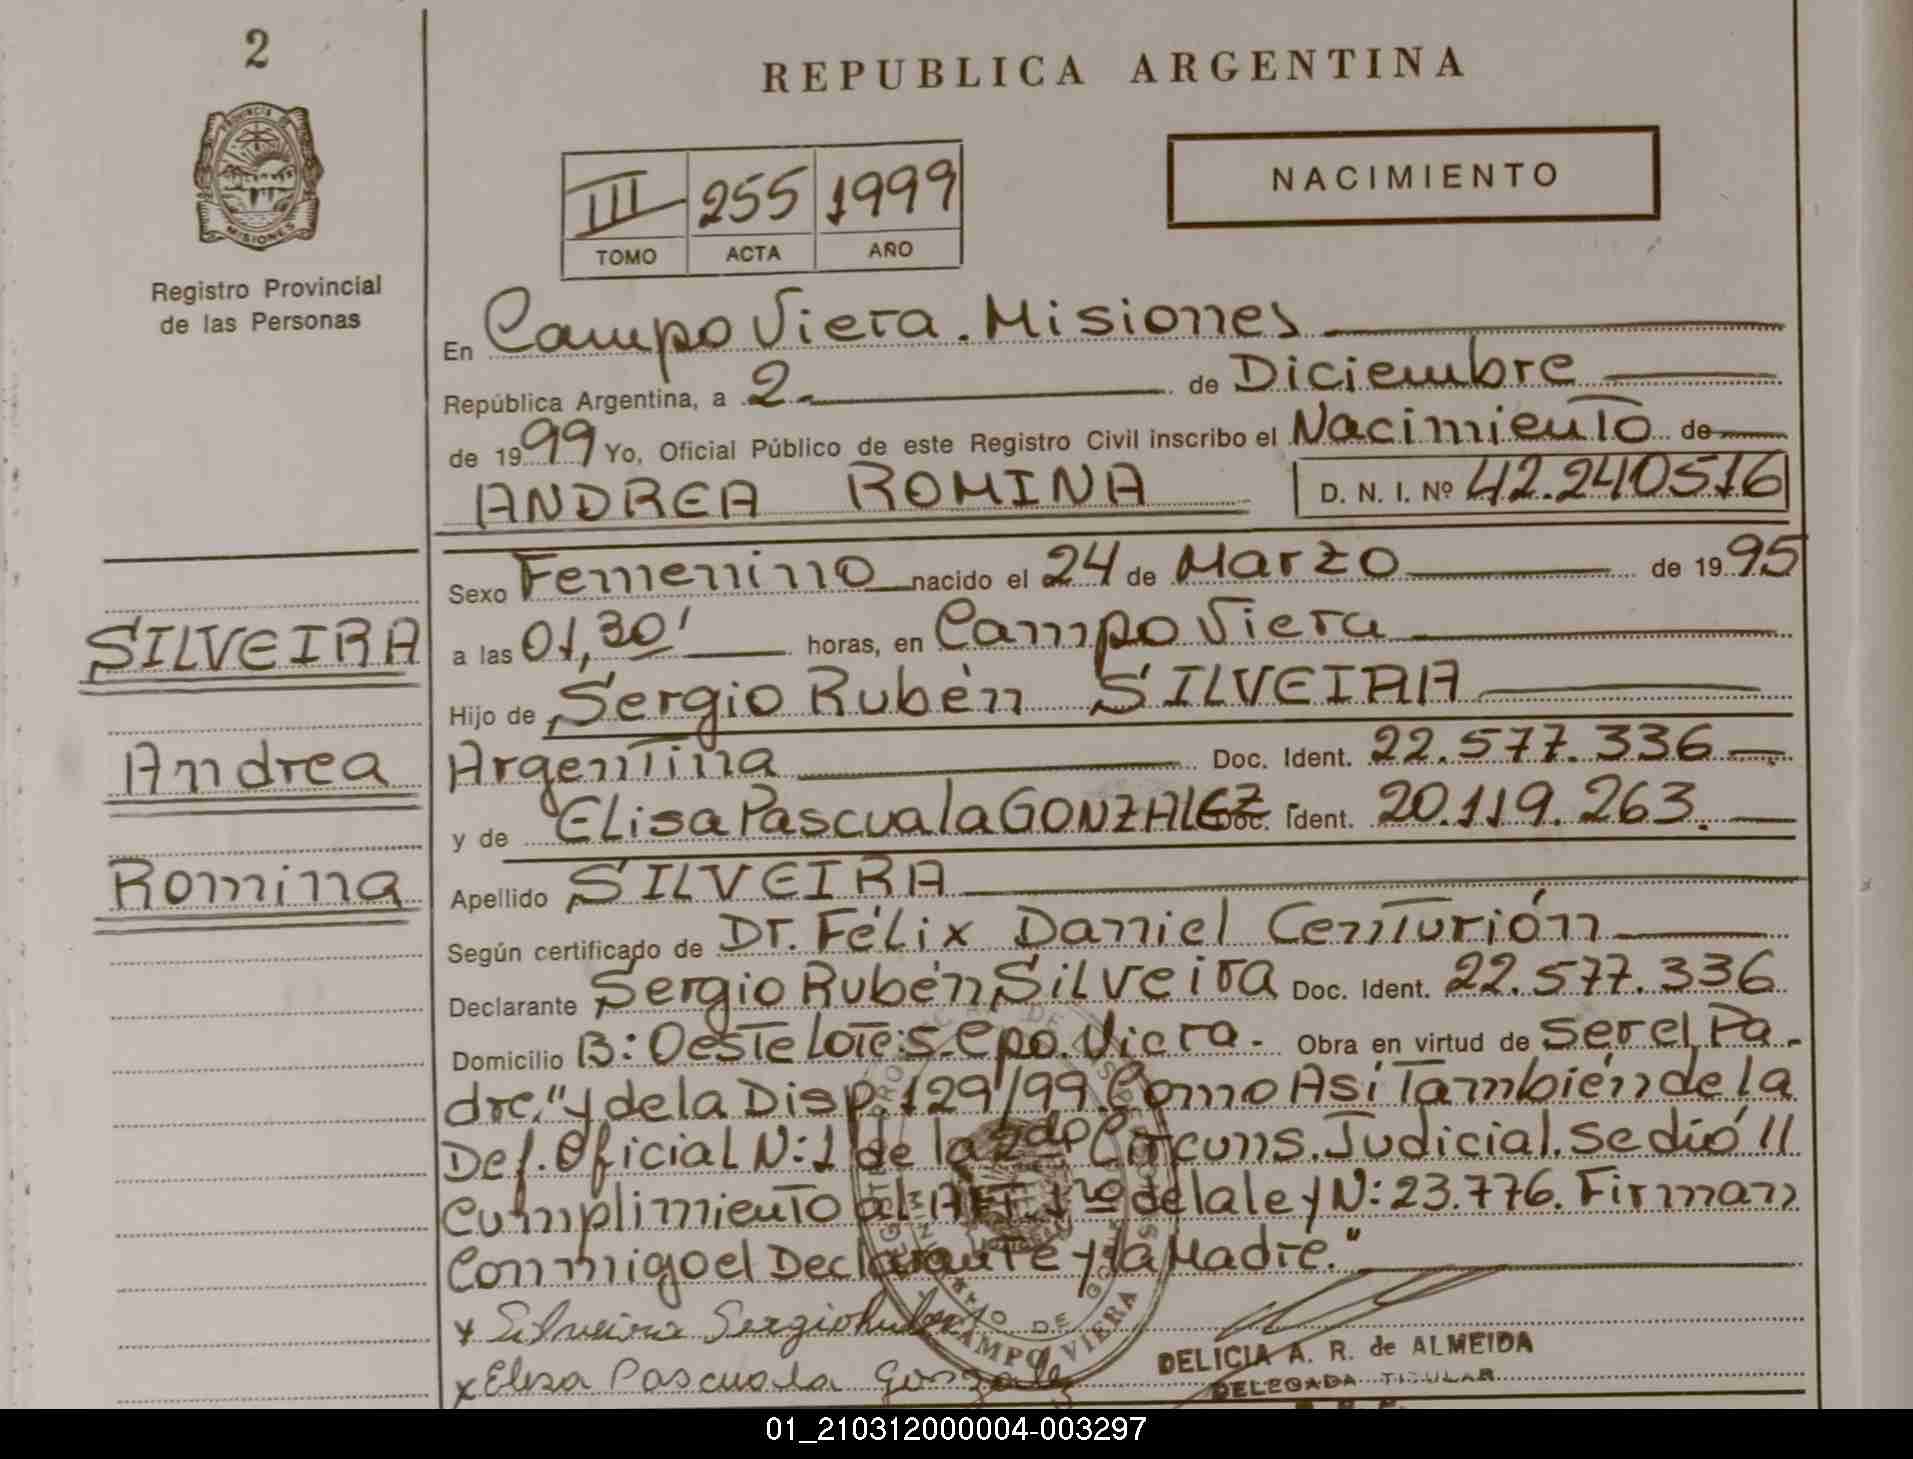 2
REPUBLICA ARGENTINA
PROVINCIA DE
MISIONES
III 255 1999
TOMO ACTA AÑO
NACIMIENTO
Registro Provincial
de las Personas
En Campo Viera. Misiones
República Argentina, a 2 de Diciembre
de 1999 Yo, Oficial Público de este Registro Civil inscribo el Nacimiento de
ANDREA ROMINA D. N. I. Nº 42.240516
Sexo Femenino nacido el 24 de Marzo de 1995
SILVEIRA
a las 01,30' horas, en Campo Viera
Hijo de Sergio Rubén SILVEIRA
Andrea
Argentina Doc. Ident. 22.577.336
y de Elisa Pascuala GONZALEZ Doc. Ident. 20.119.263.
Romina
Apellido SILVEIRA
Según certificado de Dr. Félix Daniel Centurión
Declarante Sergio Rubén Silveira Doc. Ident. 22.577.336
Domicilio B: Oeste Lote: s. Cpo. Viera. Obra en virtud de ser el Pa-
dre." y de la Disp. 129/99. Como Así También de la
Def. Oficial N: 1 de la 2da Circuns. Judicial. se dió 11
Cumplimiento al ART. 1ro de la ley N: 23.776. Firman
Conmigo el Declarante y la Madre."
x Silveira Sergio Ruben
CAMPO VIERA
x Elisa Pascuala Gonzalez
DELICIA A. R. de ALMEIDA
DELEGADA TITULAR
01_210312000004-003297